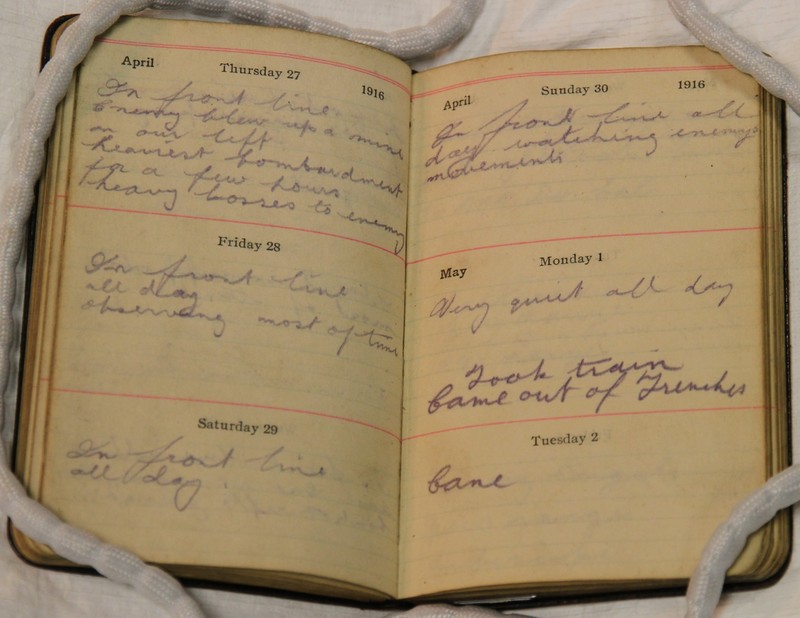 April Thursday 27 1916
In front line
Enemy blew up a mine
on our left
heaviest bombardment
for a few hours
heavy losses to enemy
Friday 28
In front line
all day
observing most of time
Saturday 29
In front line
all day.
April Sunday 30 1916
In front line all
day watching enemys
movements
May Monday 1
Very quiet all day
Took train
Came out of Trenches
Tuesday 2